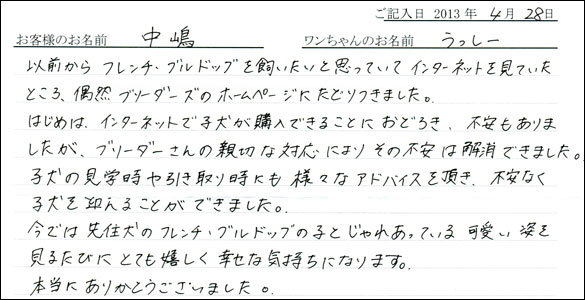 ご記入日 2013 年 4月 28日
お客様のお名前 中嶋 ワンちゃんのお名前 うっしー
以前から フレンチ・ブルドッグを飼いたいと思っていて インターネットを見ていた
ところ、偶然 ブリーダーズのホームページにたどりつきました。
はじめは、インターネットで子犬が購入できることに おどろき、不安もありま
したが、ブリーダーさんの親切な対応により その不安は解消できました。
子犬の見学時や引き取り時にも 様々なアドバイスを頂き、不安なく
子犬を迎えることができました。
今では 先住犬のフレンチ・ブルドッグの子とじゃれあっている 可愛い姿を
見るたびに とても嬉しく 幸せな気持ちになります。
本当に ありがとうございました。